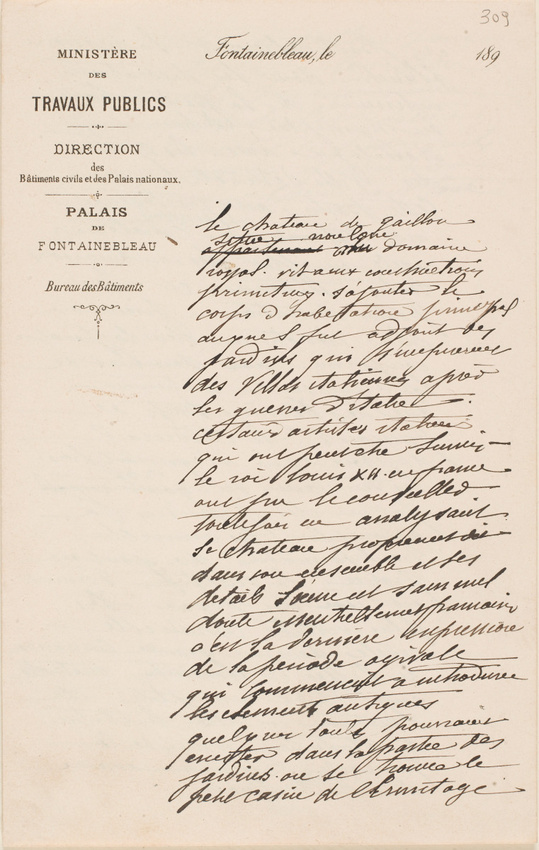 309
MINISTÈRE
DES
TRAVAUX PUBLICS
DIRECTION
des
Bâtiments civils et des Palais nationaux.
PALAIS
DE
FONTAINEBLEAU
Bureau des Bâtiments
Fontainebleau, le 189
le chateau de gaillon
domaine
royal. vit aux constructions
primitives s'ajouter le
corps d'habitation principal
auquel fut adjoint des
jardins qui
des Villas italiennes après
les guerres d'Italie.
certains artistes italiens
qui ont peut etre suivi
le roi Louis XII en france
ont pu le conseiller
toutefois en analysant
le chateau proprement dit
dans son ensemble et ses
details l'œuvre est sans nul
doute essentiellement française
c'est la derniere expression
de la periode ogivale
qui commencait a introduire
les elements antiques
quelques doutes pourraient
exister dans la partie des
jardins ou se trouve le
petit casin de l'Ermitage